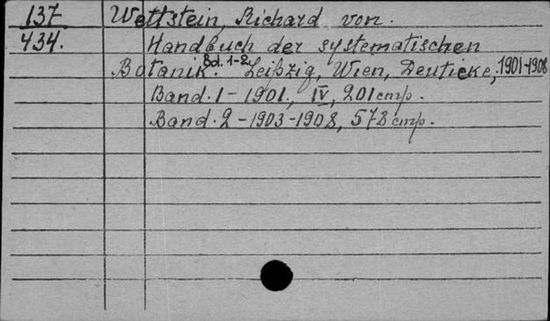 137 Wettstein, Richard von.
434. Handbuch der systematischen
Botanik. Bd. 1-2. Leipzig, Wien, Deuticke, 1901-1908
Band. 1 - 1901., IV, 201 cmp.
Band. 2 - 1903-1908, 578 cmp.